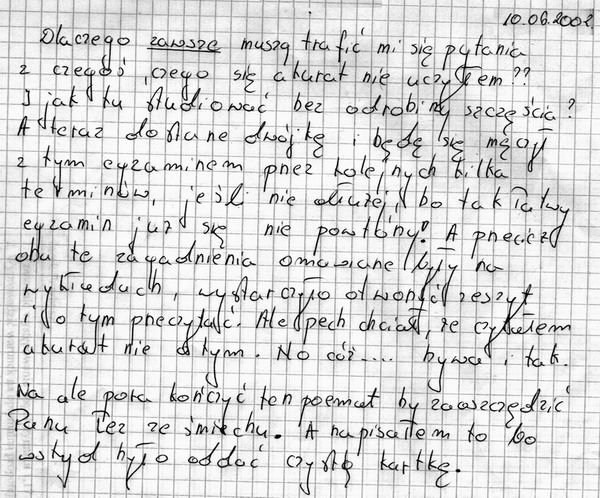 10.06.2002.
Dlaczego zawsze muszą trafić mi się pytania
z czegoś, czego się akurat nie uczyłem??
I jak tu studiować bez odrobiny szczęścia?
A teraz dostanę dwójkę i będę się męczył
z tym egzaminem przez kolejnych kilka
terminów, jeśli nie dłużej, bo tak łatwy
egzamin już się nie powtórzy! A przecież
oba te zagadnienia omawiane były na
wykładach, wystarczyło otworzyć zeszyt
i o tym przeczytać. Ale pech chciał, że czytałem
akurat nie o tym. No cóż.... bywa i tak.
Na ale pora kończyć ten poemat by zaoszczędzić
Panu łez ze śmiechu. A napisałem to bo
wstyd było oddać czystą kartkę.